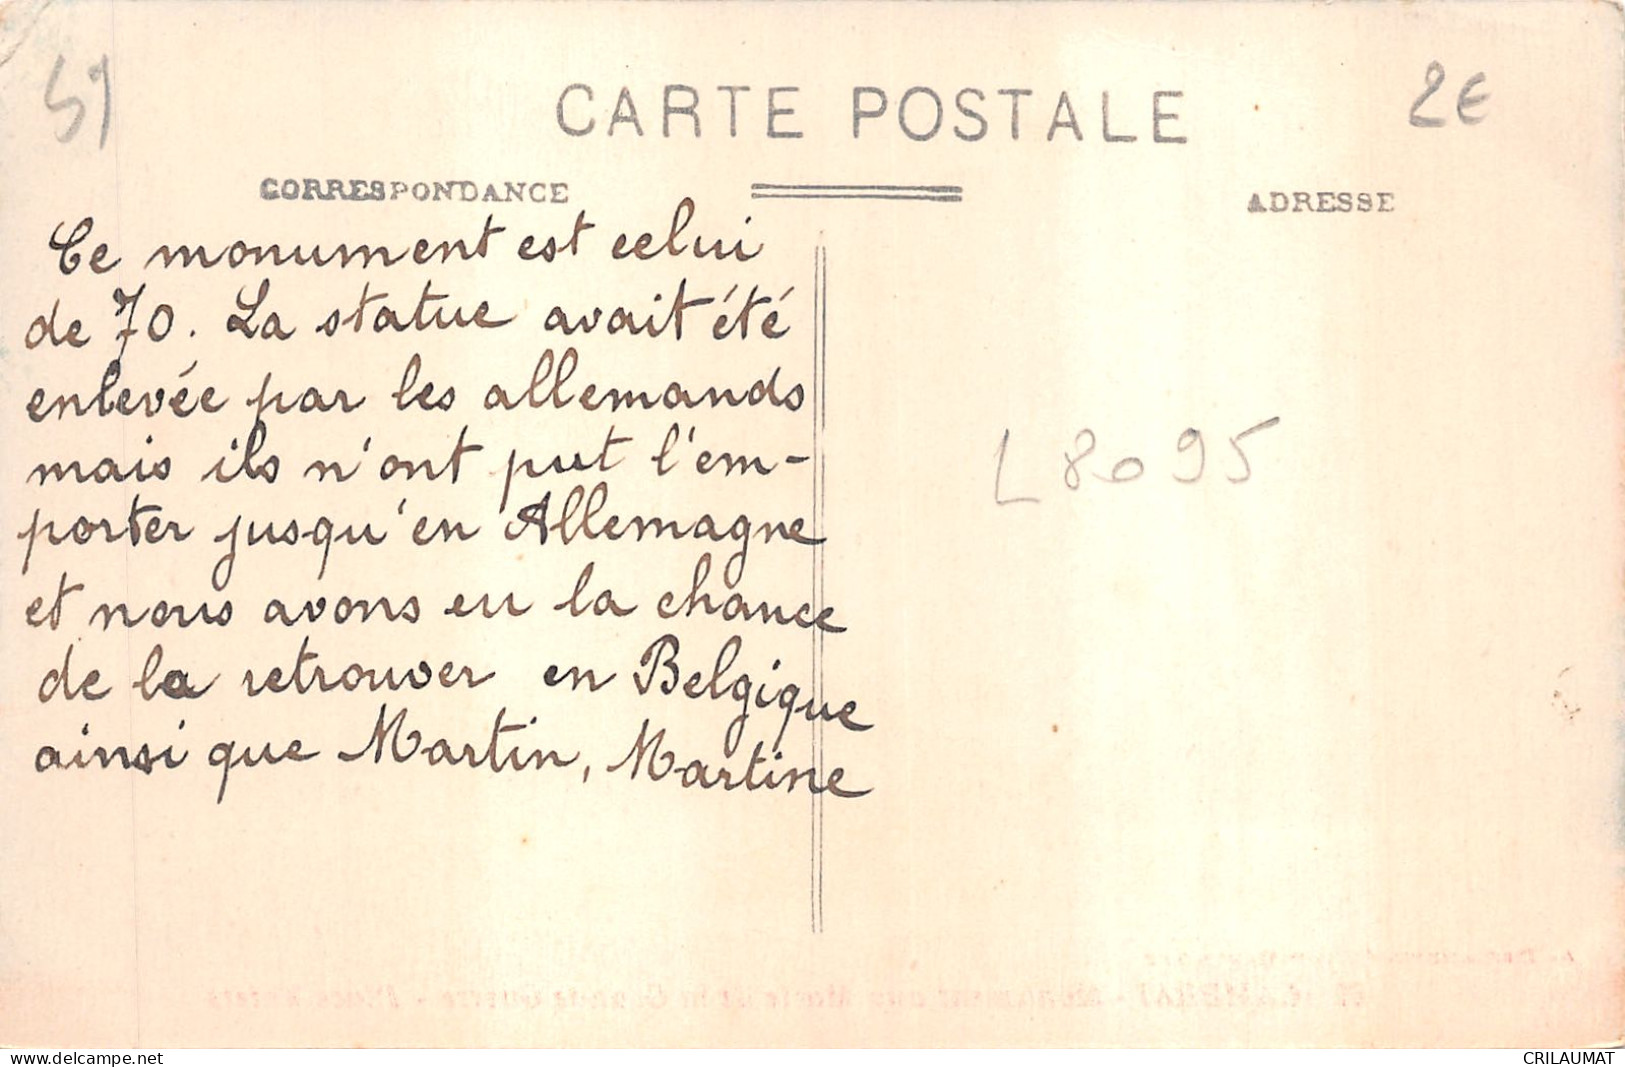 59
CARTE POSTALE
2€
CORRESPONDANCE
ADRESSE
Ce monument est celui
de 70. La statue avait été
enlevée par les allemands
mais ils n'ont put l'em-
porter jusqu'en Allemagne
et nous avons eu la chance
de la retrouver en Belgique
ainsi que Martin, Martine
L 8095
CAMBRAI - Monument aux Morts de la Grande Guerre
CRILAUMAT